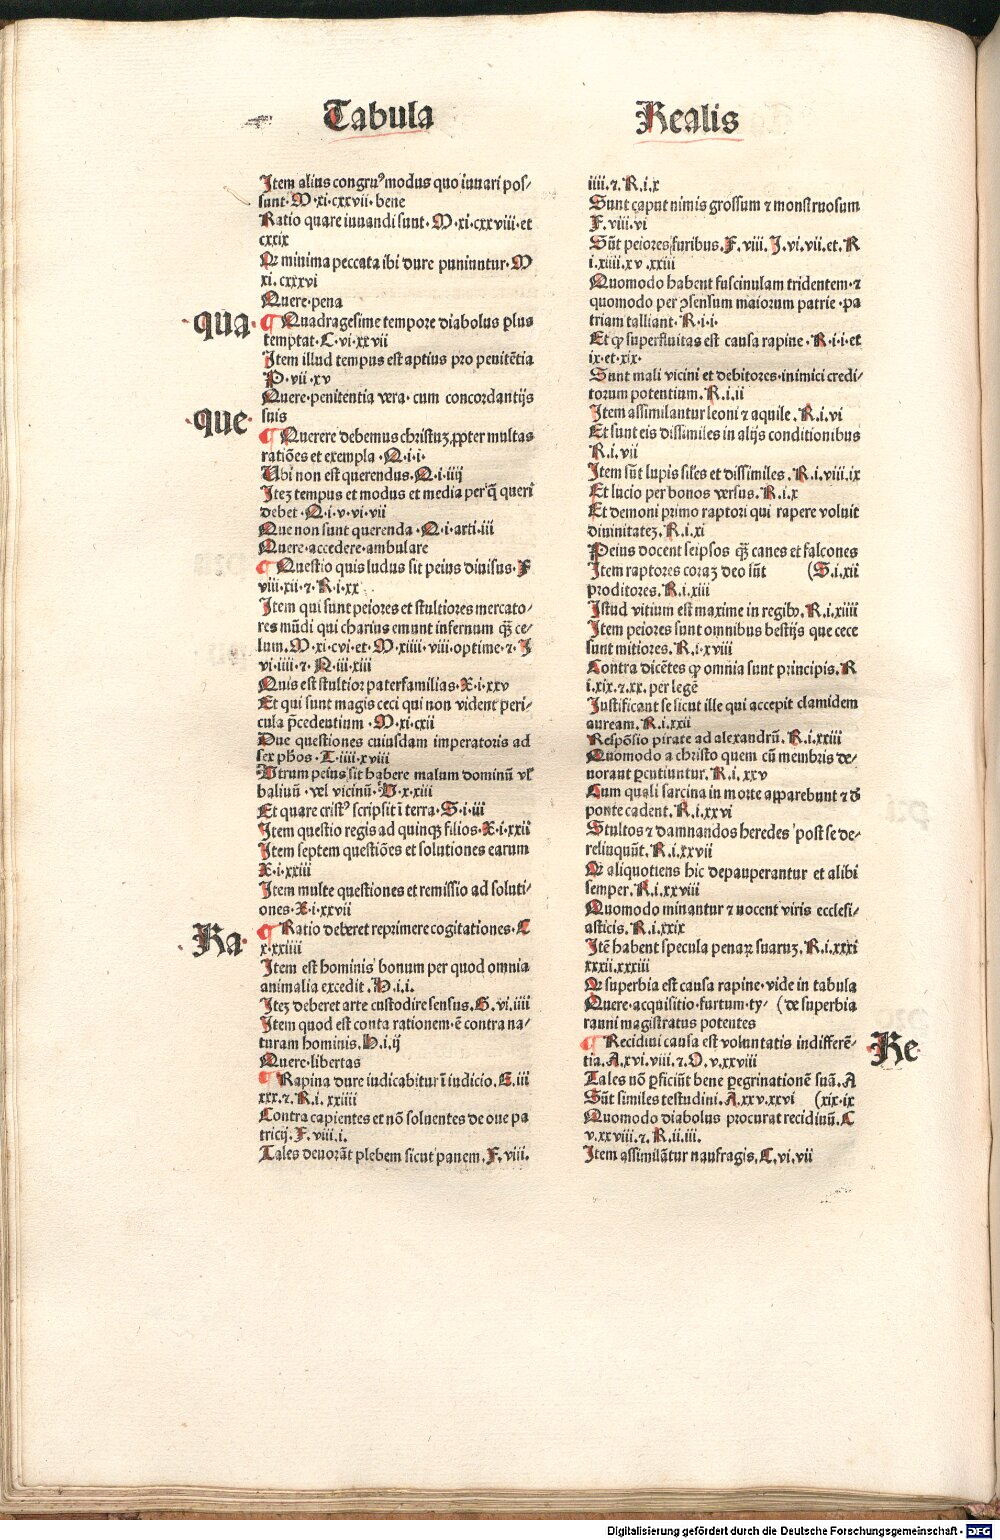 Tabula
Realis
Item alius congru⁹ modus quo iuuari pos/
sunt. M. xi. cxxvii. bene
Ratio quare iuuandi sunt. M. xi. cxxviii. et
cxxix
Qr minima peccata ibi dure puniuntur. M
xi. cxxxvi
Quere. pena
qua.
¶ Quadragesime tempore diabolus plus
temptat. C. vi. xxvii
Item illud tempus est aptius pro penitētia
P. vii. xv
Quere. penitentia vera. cum concordantijs
suis
que
¶ Querere debemus christuꝫ ꝓpter multas
ratiões et exempla. Q. i. i.
Ubi non est querendus. Q. i. iiij
Iteꝫ tempus et modus et media per q̄ queri
debet. Q. i. v. vi. vii
Que non sunt querenda. Q. i. arti. iii
Quere. accedere. ambulare
¶ Questio quis ludus sit peius diuisus. F
viii. xii. ⁊. R. i. xx
Item qui sunt peiores et stultiores mercato/
res mūdi qui charius emunt infernum qꝫ̄ ce/
lum. M. xi. cvi. et. M. xiiii. viii. optime. ⁊. I
vi. iiii. ⁊. N. iii. xiii
Quis est stultior paterfamilias. X. i. xxv
Et qui sunt magis ceci qui non vident peri/
cula p̄cedentium. M. xi. cxii
Due questiones cuiusdam imperatoris ad
sex ph̄os. T. iiii. xviii
Utrum peius sit habere malum dominū vl̄
baliuū. vel vicinū. D. x. xiii
Et quare crist⁹ scripsit ī terra. S. i. iii
Item questio regis ad quinqꝫ filios. X. i. xxii
Item septem questiões et solutiones earum
X. i. xxiii
Item multe questiones et remissio ad soluti/
ones. X. i. xxvii
Ra.
¶ Ratio deberet reprimere cogitationes. C
x. xxiiii
Item est hominis bonum per quod omnia
animalia excedit. H. i. i.
Iteꝫ deberet arte custodire sensus. G. vi. iiii
Item quod est conta rationem. ē contra na/
turam hominis. H. i. ij
Quere. libertas
¶ Rapina dure iudicabitur ī iudicio. G. iii
xxx. ⁊. R. i. xxiiii
Contra capientes et nō soluentes de oue pa
tricij. F. viii. i.
Tales deuorāt plebem sicut panem. F. viii.
iiii. ⁊. R. i. x
Sunt caput nimis grossum ⁊ monstruosum
F. viii. vi
Sūt peiores furibus. F. viii. I. vi. vii. et. R
i. xiiii. xv. xxiii
Quomodo habent fuscinulam tridentem. ⁊
quomodo per ꝯsensum maiorum patrie. pa
triam talliant. R. i. i.
Et qꝫ superfluitas est causa rapine. R. i. i. et
ix. et. xix.
Sunt mali vicini et debitores. inimici credi/
torum potentium. R. i. ii
Item assimilantur leoni ⁊ aquile. R. i. vi
Et sunt eis dissimiles in alijs conditionibus
R. i. vii
Item sūt lupis sil̄es et dissimiles. R. i. viii. ix
Et lucio per bonos versus. R. i. x
Et demoni primo raptori qui rapere voluit
diuinitateꝫ. R. i. xi
Peius docent seipsos qꝫ̄ canes et falcones
Item raptores coraꝫ deo sūt (S. i. xii
proditores. R. i. xiii
Istud vitium est maxime in regibꝫ. R. i. xiiii
Item peiores sunt omnibus bestijs que cece
sunt mitiores. R. i. xviii
Contra dicētes qꝫ omnia sunt principis. R
i. xix. ⁊. xx. per legē
Iustificant se sicut ille qui accepit clamidem
auream. R. i. xxii
Respōsio pirate ad alexandrū. R. i. xxiii
Quomodo a christo quem cū membris de/
uorant ꝑcutiuntur. R. i. xxv
Cum quali sarcina in morte apparebunt ⁊ d̄
ponte cadent. R. i. xxvi
Stultos ⁊ damnandos heredes post se de/
relinquūt. R. i. xxvii
Qr aliquotiens hic depauperantur et alibi
semper. R. i. xxviii
Quomodo minantur ⁊ nocent viris ecclesi/
asticis. R. i. xxix
Itē habent specula penaꝝ suaruꝫ. R. i. xxxi
xxxii. xxxiii
Qr superbia est causa rapine. vide in tabula
Quere. acquisitio. furtum. ty/ (de superbia
ranni magistratus potentes
Re
¶ Recidiui causa est voluntatis indifferē/
tia. A. xvi. viii. ⁊. O. v. xxviii
Tales nō ꝑficiūt bene ꝑegrinationē suā. A
Sūt similes testudini. A. xxv. xxvi (xix. ix
Quomodo diabolus procurat recidiuū. C
v. xxviii. ⁊. R. ii. iii.
Item assimilātur naufragis. C. vi. vii
Digitalisierung gefördert durch die Deutsche Forschungsgemeinschaft - DFG